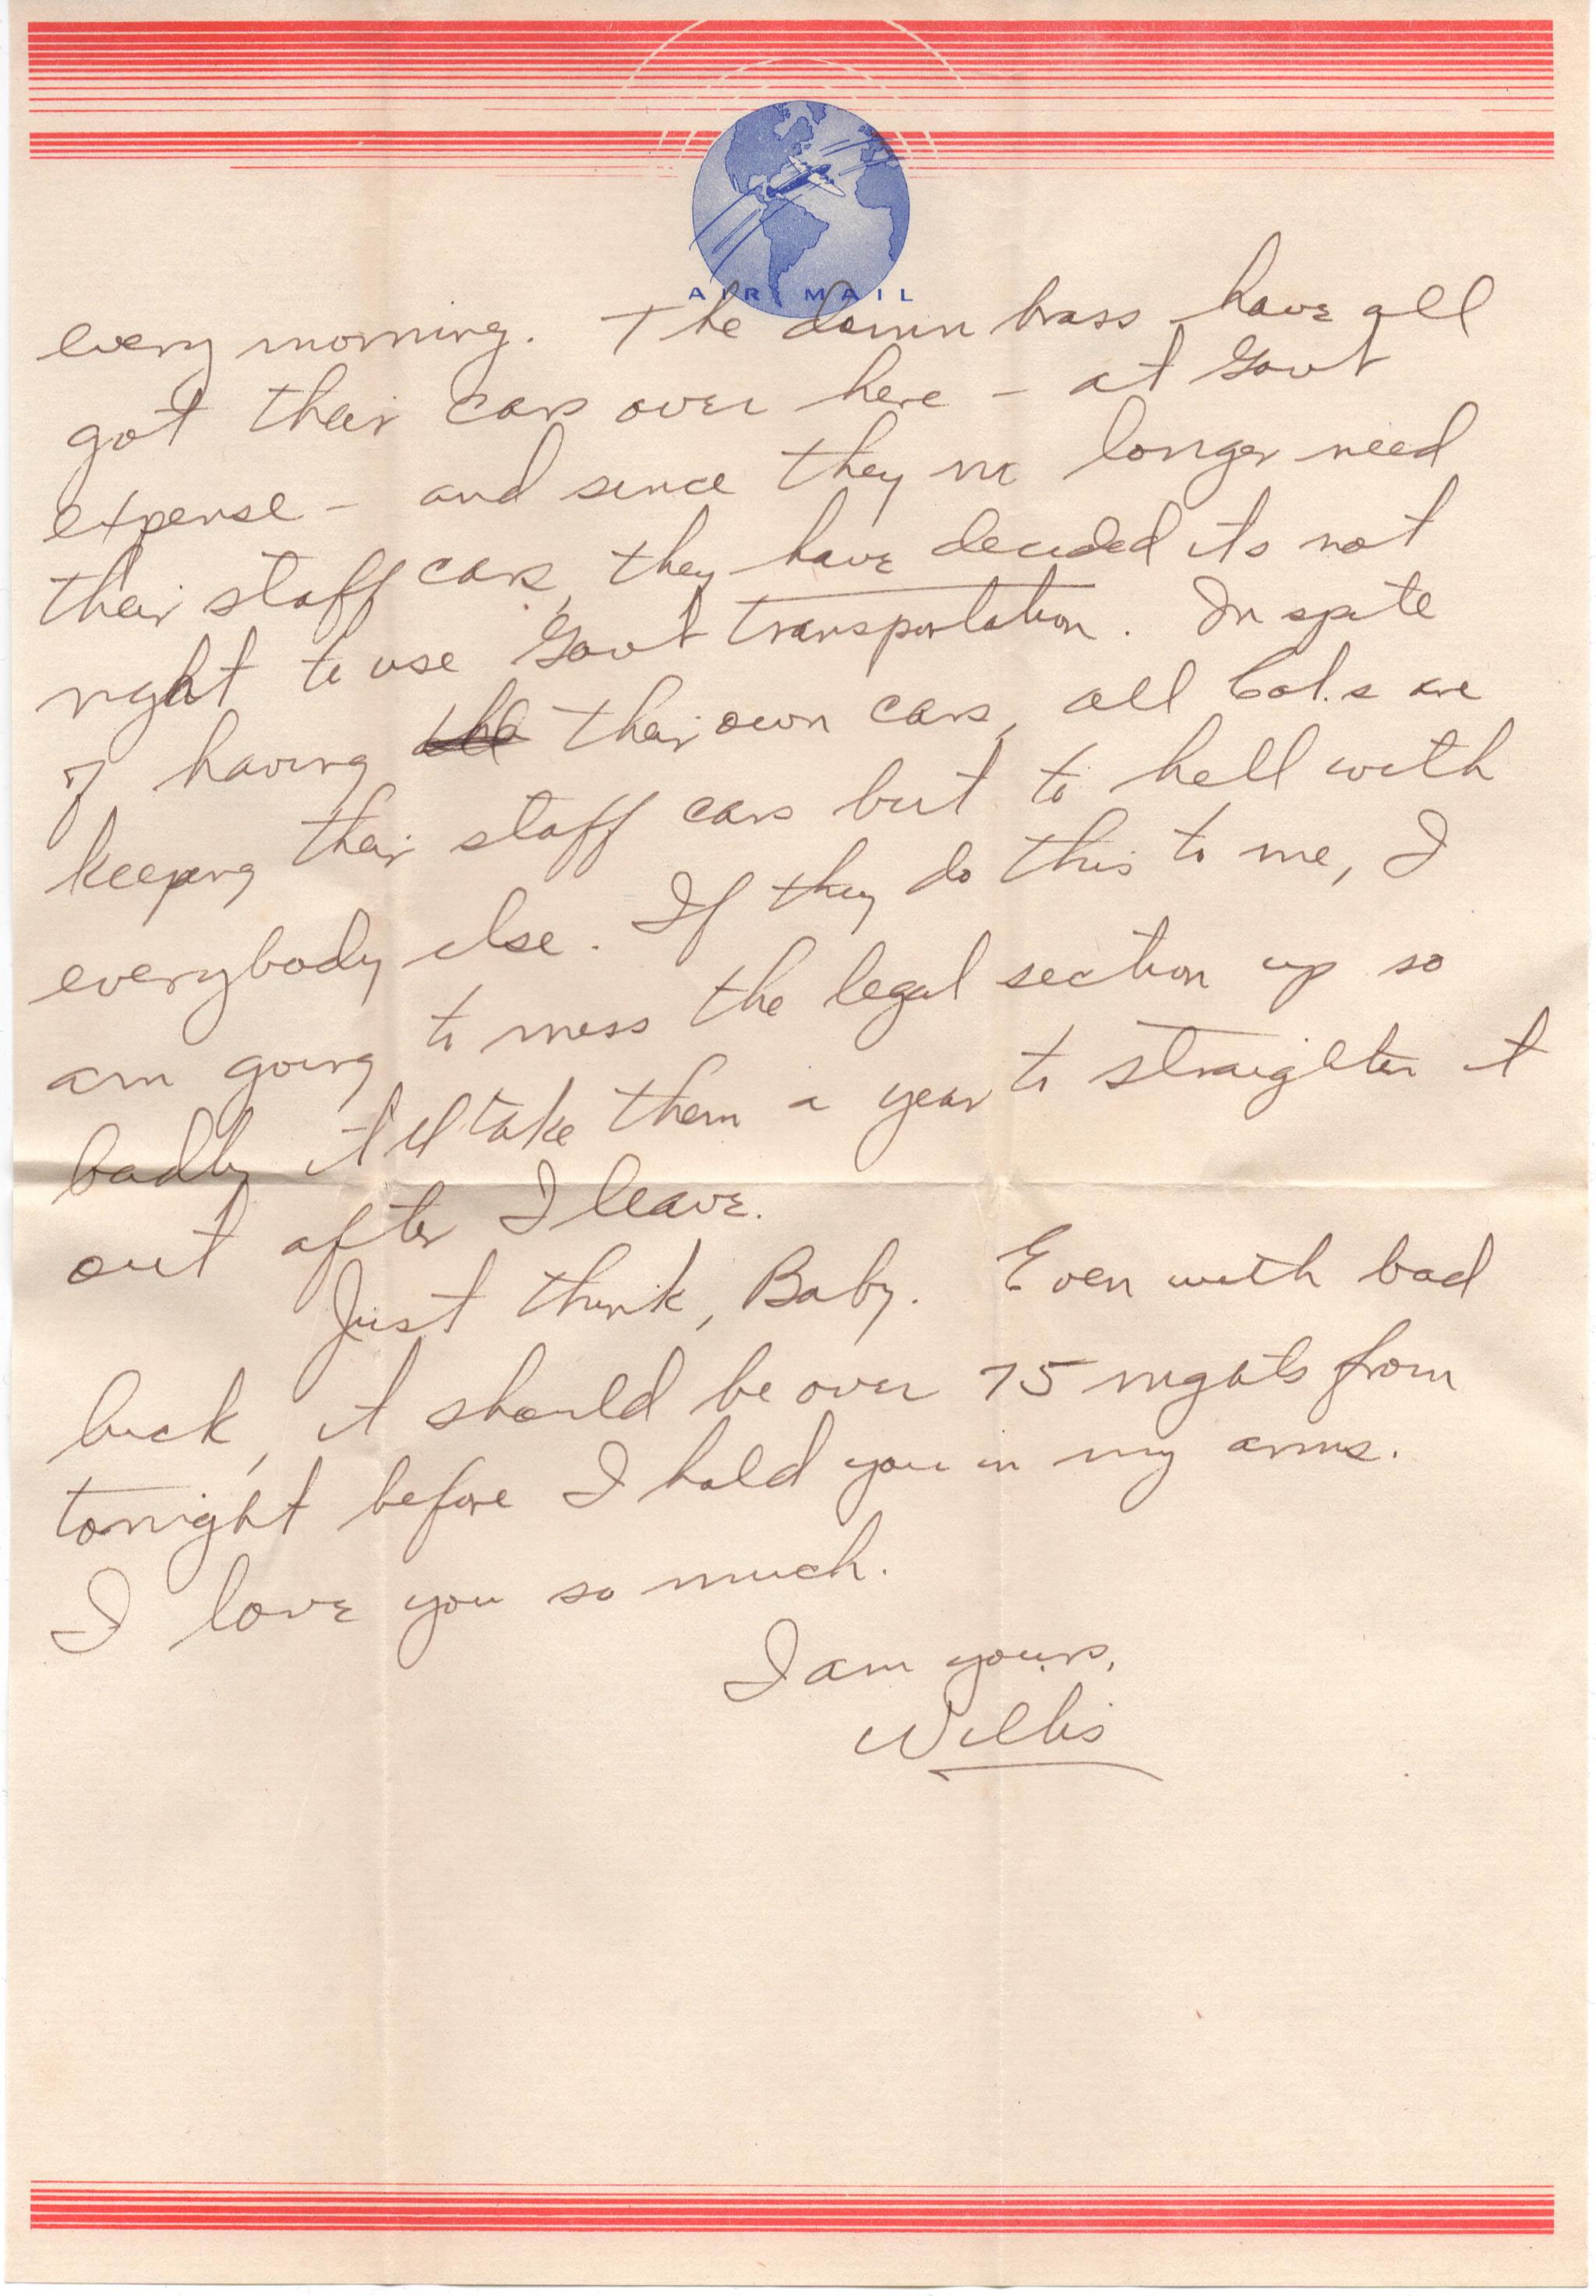 AIR MAIL
every morning. The damn brass have all
got their cars over here - at Govt
expense - and since they no longer need
their staff cars, they have decided its not
right to use Govt transportation. In spite
of having the their own cars, all Col.s are
keeping their staff cars but to hell with
everybody else. If they do this to me, I
am going to mess the legal section up so
badly it'll take them a year to straighten it
out after I leave.
Just think, Baby. Even with bad
luck, it should be over 75 nights from
tonight before I hold you in my arms.
I love you so much.
I am yours,
Willis